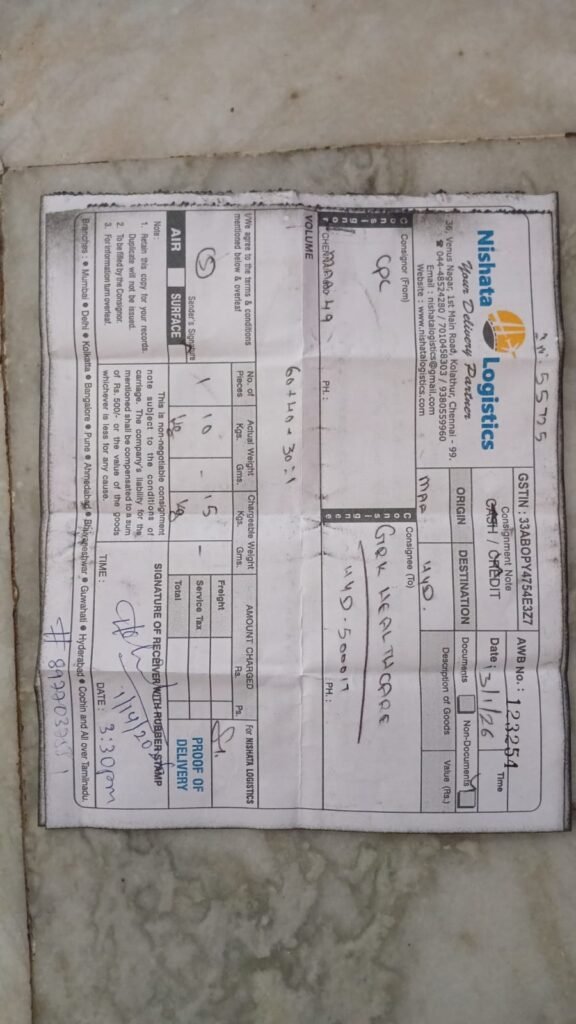 55725
Nishata Logistics
Your Delivery Partner
36, Venus Nagar, 1st Main Road, Kolathur, Chennai - 99.
☎ 044-48524280 / 7010458303 / 9380559960
Email : nishatalogistics@gmail.com
Website : www.nishatalogistics.com
GSTIN : 33ABOPY4754E3Z7
AWB No. : 123254
Consignment Note
CASH / CREDIT
Date : 3/1/26
Time
ORIGIN
DESTINATION
Documents
Non-Documents
MAA
HYD.
Description of Goods
Value (Rs.)
Consignor
Consignor (From)
CPC
CHENNAI
49
PH. :
Consignee
Consignee (To)
GRK HEALTHCARE
HYD - 500017
PH. :
VOLUME
60 + 40 + 30 : 1
I/We agree to the terms & conditions
mentioned below & overleaf
Sender's Signature
No. of
Pieces
Actual Weight
Kgs.
Gms.
Chargeable Weight
Kgs.
Gms.
AMOUNT CHARGED
Rs.
Ps.
For NISHATA LOGISTICS
1
10
-
15
-
kg
kg
Freight
Service Tax
Total
AIR
SURFACE
PROOF OF
DELIVERY
Note:
1. Retain this copy for your records.
Duplicate will not be issued.
2. To be filled by the Consignor.
3. For information turn overleaf.
This is non-negotiable consignment
note subject to the conditions of
carriage. The company's liability for the
mentioned shall be compensated to a sum
of Rs. 500/- or the value of the goods
whichever is less for any cause.
SIGNATURE OF RECEIVER WITH RUBBER STAMP
TIME :
DATE :
3:30pm
Branches : ● Mumbai ● Delhi ● Kolkatta ● Bangalore ● Pune ● Ahmedabad ● Bhubaneshwar ● Guwahati ● Hyderabad ● Cochin and All over Tamilnadu.